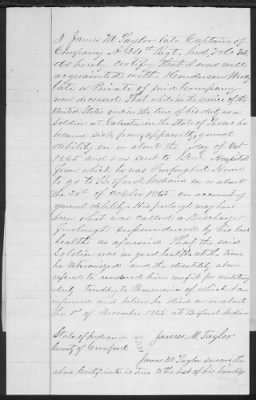 I James M Taylor late Captain of
Company A 24th Regt. Ind. Vols Inf.
do hereby certify that I was well
acquainted with Henderson
late a Private of said Company
now deceased That while in the service of the
United States and in the line of his duty as a
Soldier at Galveston in the State of Texas he
became sick from apparently general
debility on or about the day of Oct
1865 and was sent to Hospital
from which he was Furloughed Home
to go to Bedford Indiana on or about
the 20th of October 1865 on account of
general debility. His furlough may have
been what was called a Discharge
furlough superinduced by his bad
health as aforesaid That the said
Soldier was in good health at the time
he and the disability above
referred to rendered him unfit for military
duty tending to of which I am
informed and believe he died on or about
the 1st of December 1865 at Bedford Indiana
State of Indiana
County of Crawford
James M. Taylor
James M. Taylor swears the
above Certificate is true to the best of his knowledge